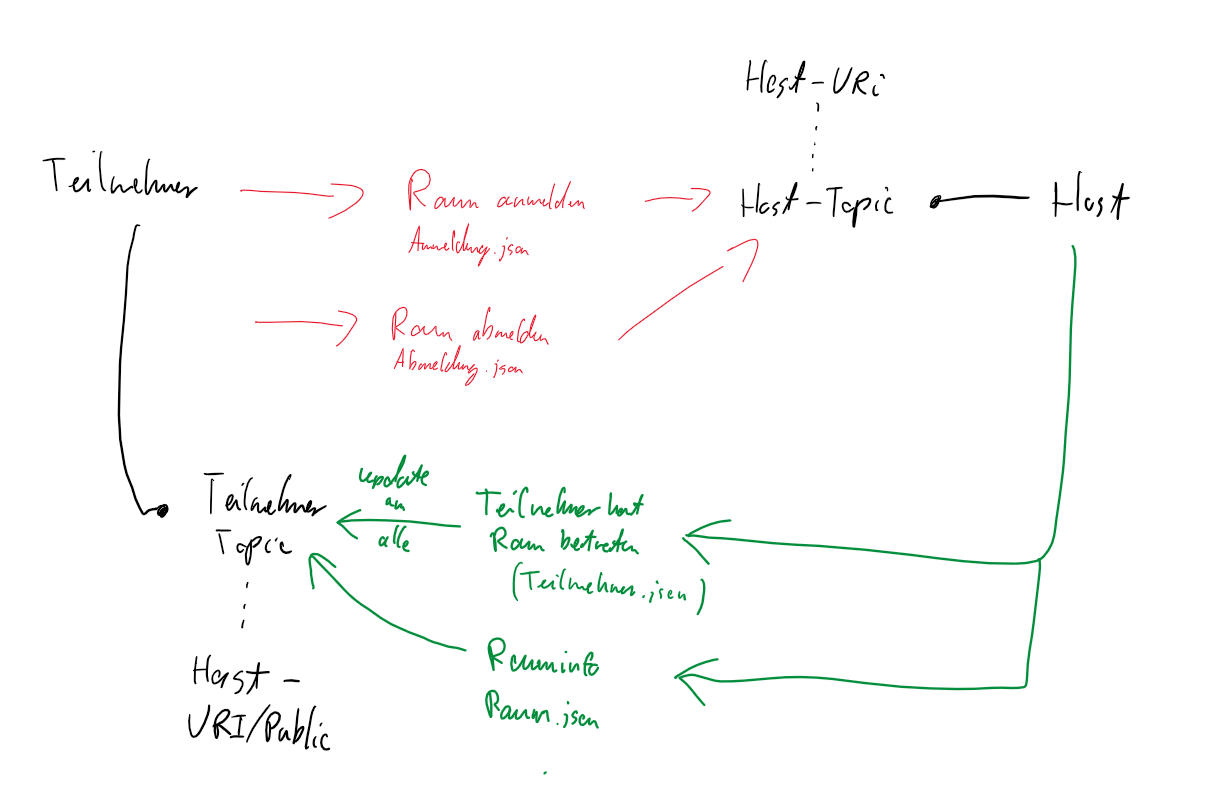 Host-URi
Teilnehmer
Raum anmelden
Anmeldung.json
Host-Topic
Host
Raum abmelden
Abmeldung.json
update
an
alle
Teilnehmer
Topic
Teilnehmer hat
Raum betreten
(Teilnehmer.json)
Rauminfo
Raum.json
Host-
URI/Public